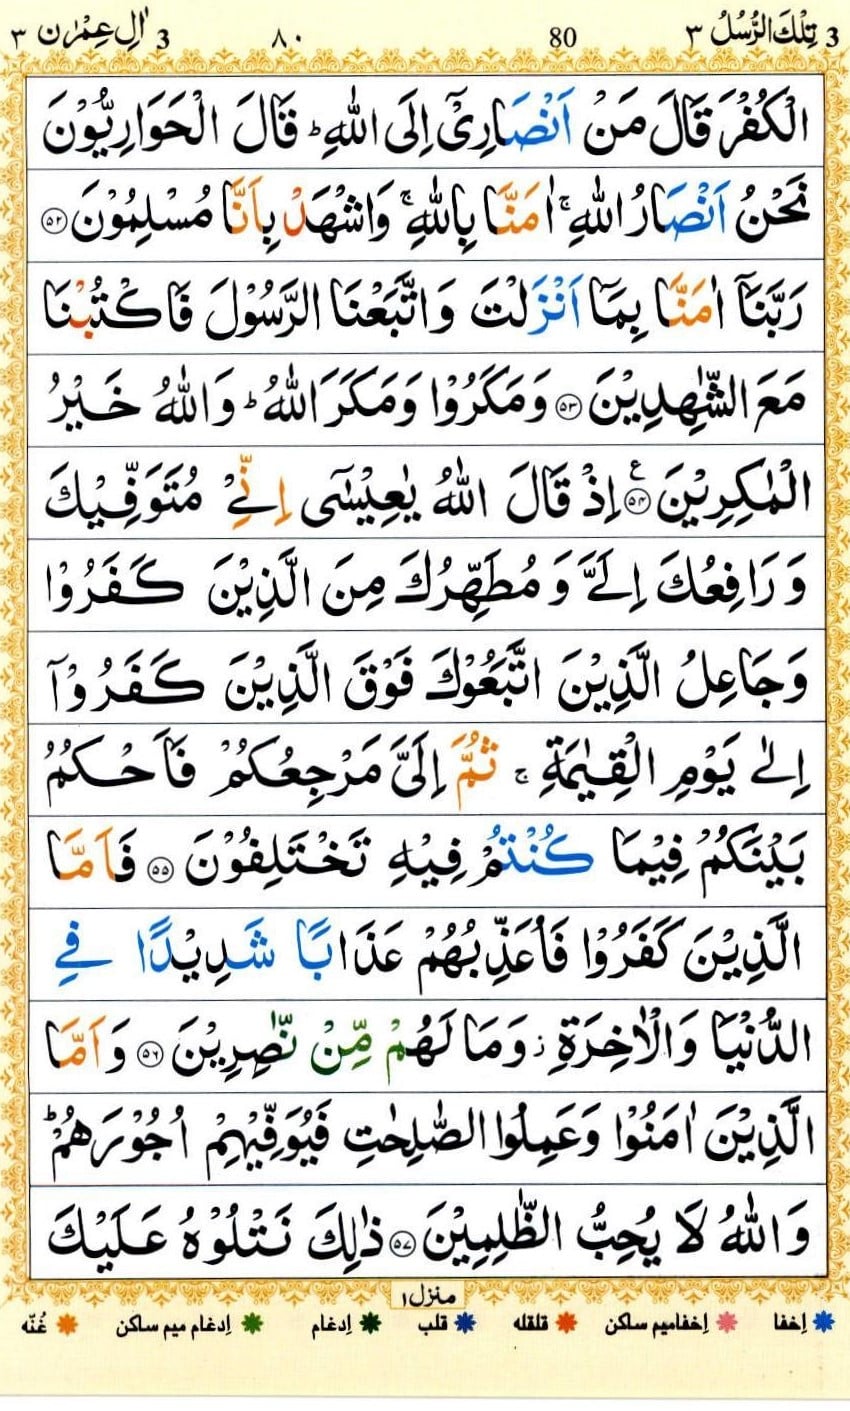 3 تِلْكَ الرُّسُلُ ٣ 80 ٨٠ اٰلِ عِمْرٰن 3 ٣
الْكُفْرَ قَالَ مَنْ اَنْصَارِیْۤ اِلَى اللّٰهِ ؕ قَالَ الْحَوَارِیُّوْنَ
نَحْنُ اَنْصَارُ اللّٰهِ ۚ اٰمَنَّا بِاللّٰهِ ۚ وَاشْهَدْ بِاَنَّا مُسْلِمُوْنَ ﴿۵۲﴾
رَبَّنَاۤ اٰمَنَّا بِمَاۤ اَنْزَلْتَ وَاتَّبَعْنَا الرَّسُوْلَ فَاكْتُبْنَا
مَعَ الشّٰهِدِیْنَ ﴿۵۳﴾ وَمَكَرُوْا وَمَكَرَ اللّٰهُ ؕ وَاللّٰهُ خَیْرُ
الْمٰكِرِیْنَ ﴿۵۴﴾ ع اِذْ قَالَ اللّٰهُ یٰعِیْسٰۤی اِنِّیْ مُتَوَفِّیْكَ
وَرَافِعُكَ اِلَیَّ وَمُطَهِّرُكَ مِنَ الَّذِیْنَ كَفَرُوْا
وَجَاعِلُ الَّذِیْنَ اتَّبَعُوْكَ فَوْقَ الَّذِیْنَ كَفَرُوْۤا
اِلٰی یَوْمِ الْقِیٰمَةِ ۚ ثُمَّ اِلَیَّ مَرْجِعُكُمْ فَاَحْكُمُ
بَیْنَكُمْ فِیْمَا كُنْتُمْ فِیْهِ تَخْتَلِفُوْنَ ﴿۵۵﴾ فَاَمَّا
الَّذِیْنَ كَفَرُوْا فَاُعَذِّبُهُمْ عَذَابًا شَدِیْدًا فِی
الدُّنْیَا وَالْاٰخِرَةِ ؗ وَمَا لَهُمْ مِّنْ نّٰصِرِیْنَ ﴿۵۶﴾ وَاَمَّا
الَّذِیْنَ اٰمَنُوْا وَعَمِلُوا الصّٰلِحٰتِ فَیُوَفِّیْهِمْ اُجُوْرَهُمْ ؕ
وَاللّٰهُ لَا یُحِبُّ الظّٰلِمِیْنَ ﴿۵۷﴾ ذٰلِكَ نَتْلُوْهُ عَلَیْكَ
منزل ۱
اِخفا اِخفامیم ساکن قلقله قلب اِدغام اِدغام میم ساکن غُنّه